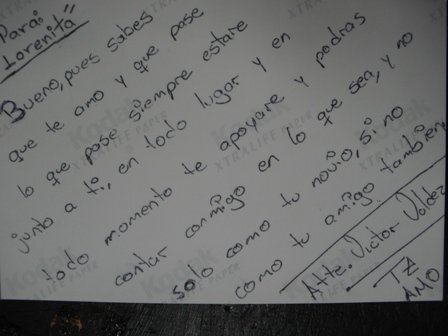 Para:
Lorenita"
Bueno, pues sabes
que te amo y que pase
lo que pase siempre estare
junto a ti, en todo lugar y en
todo momento te apoyare y podras
contar conmigo en lo que sea, y no
solo como tu novio, si no
como tu amigo tambien
Atte. Victor Valdez
TE
AMO
Kodak
XTRALIFE PAPER